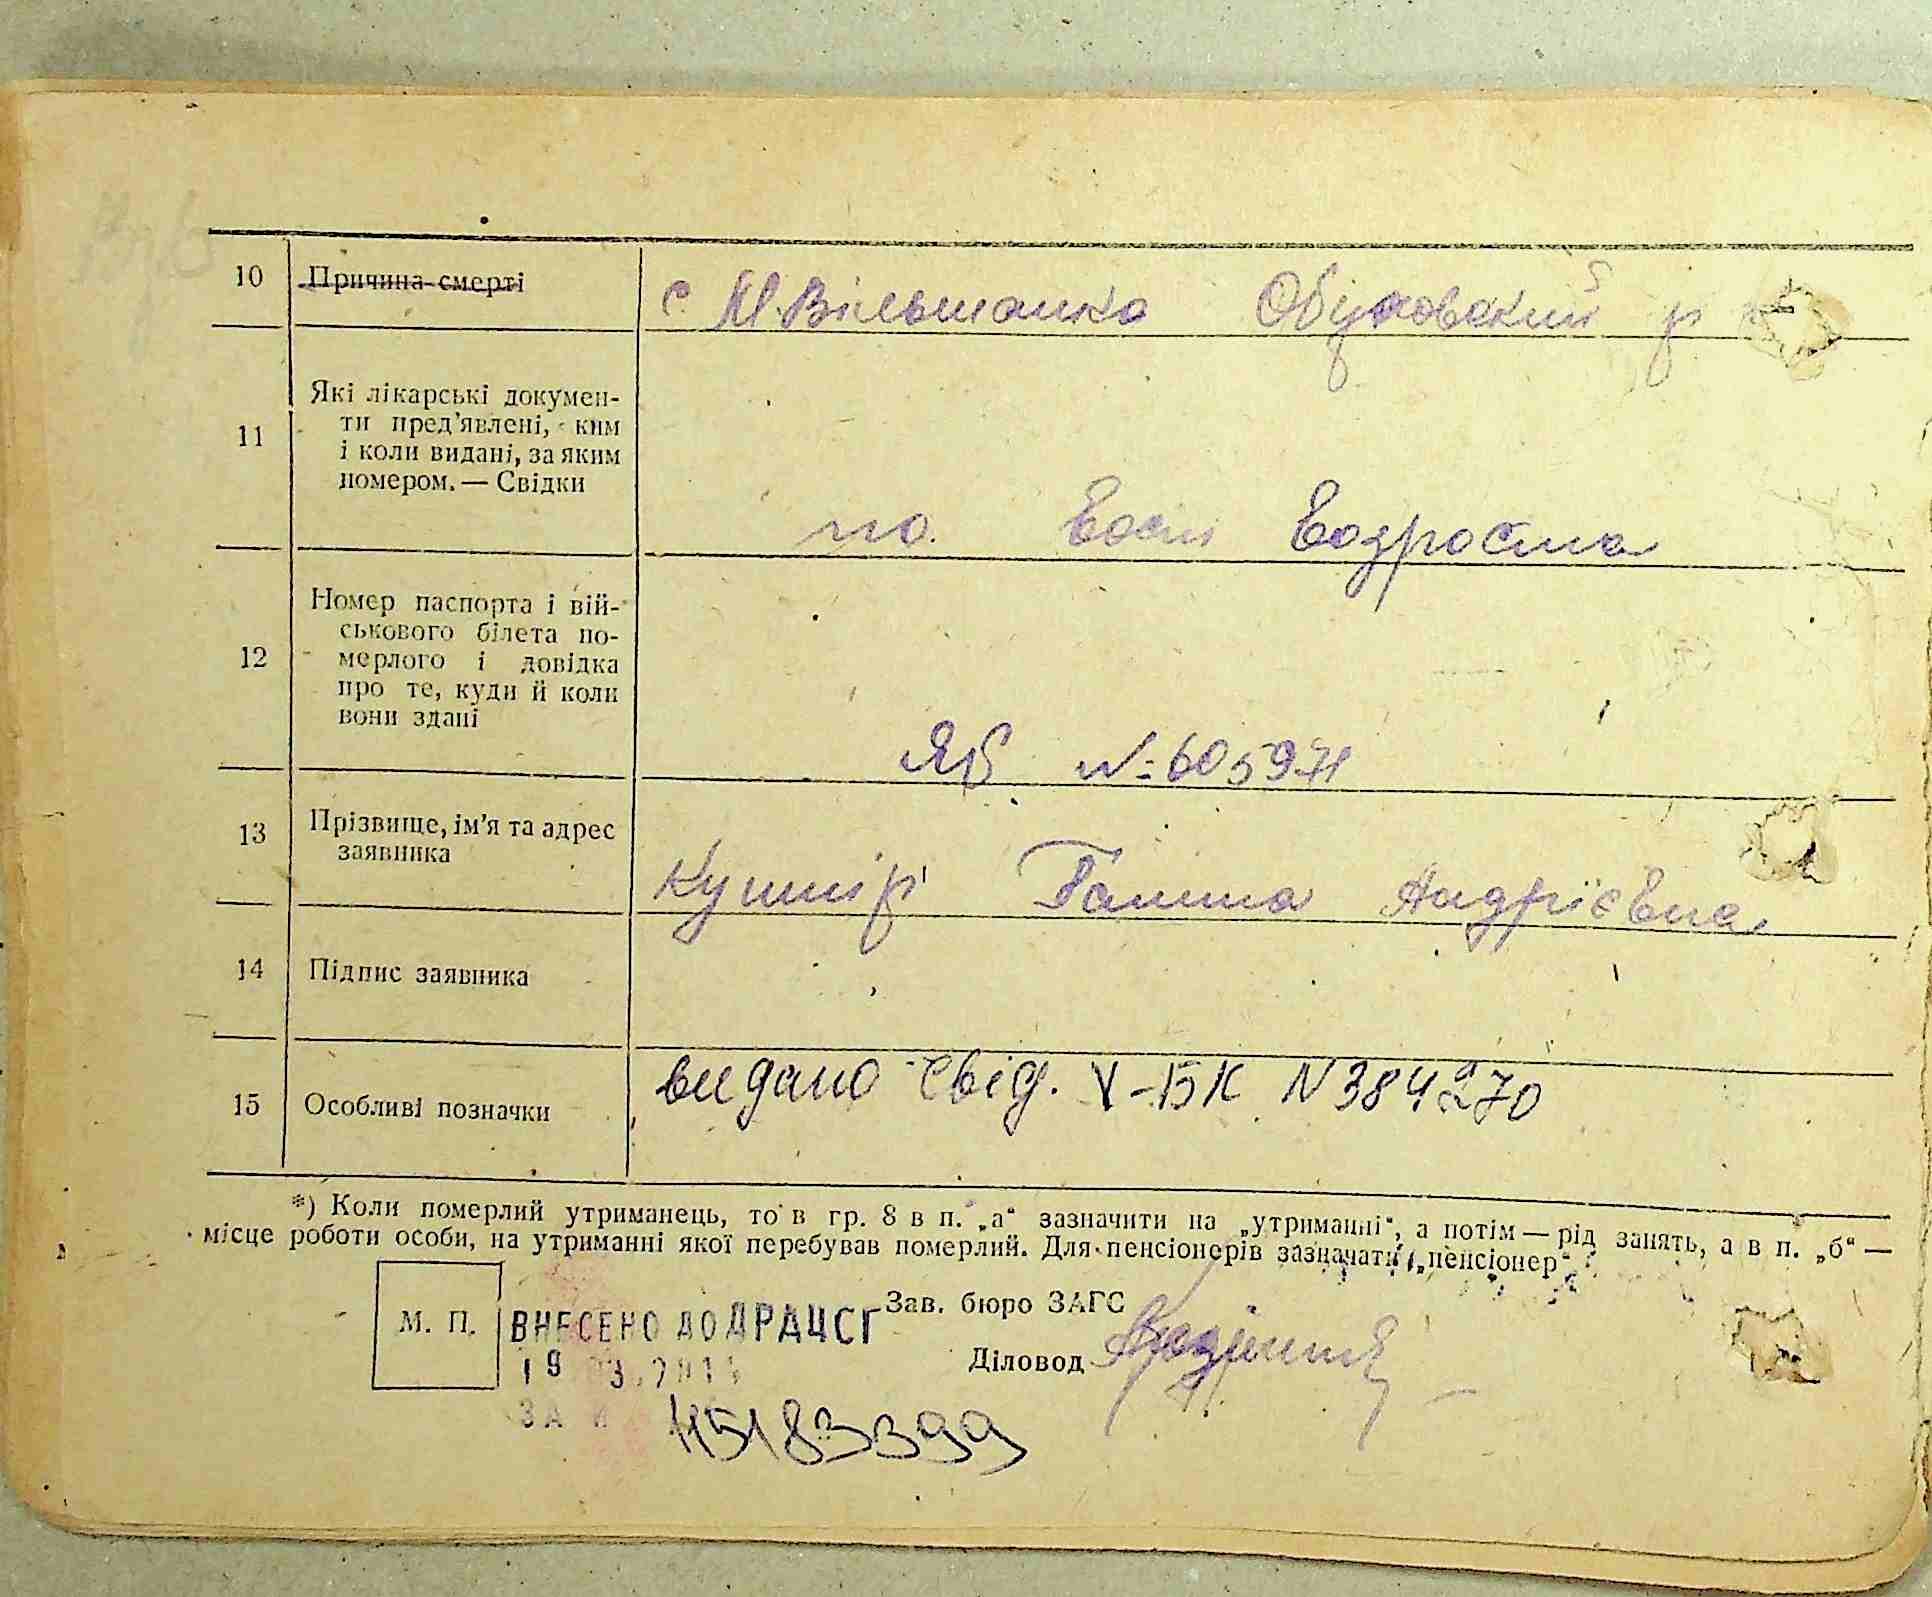 10 Причина смерті с М.Вільшанка Обуховский р
11 Які лікарські докумен-
ти пред'явлені, ким
і коли видані, за яким
номером. — Свідки
по возросла
12 Номер паспорта і вій-
ськового білета по-
мерлого і довідка
про те, куди й коли
вони здані
ЯБ №605971
13 Прізвище, ім'я та адрес
заявника
Кушнір Галина Андрієвна
14 Підпис заявника
15 Особливі позначки видано свід. V-БК N 384270
*) Коли померлий утриманець, то в гр. 8 в п. „а“ зазначити на „утриманні“, а потім — рід занять, а в п. „б“ —
місце роботи особи, на утриманні якої перебував померлий. Для пенсіонерів зазначати „пенсіонер“
Зав. бюро ЗАГС
М. П. ВНЕСЕНО ДО ДРАЦСГ
Діловод
19 3.201
ЗА №
45183399